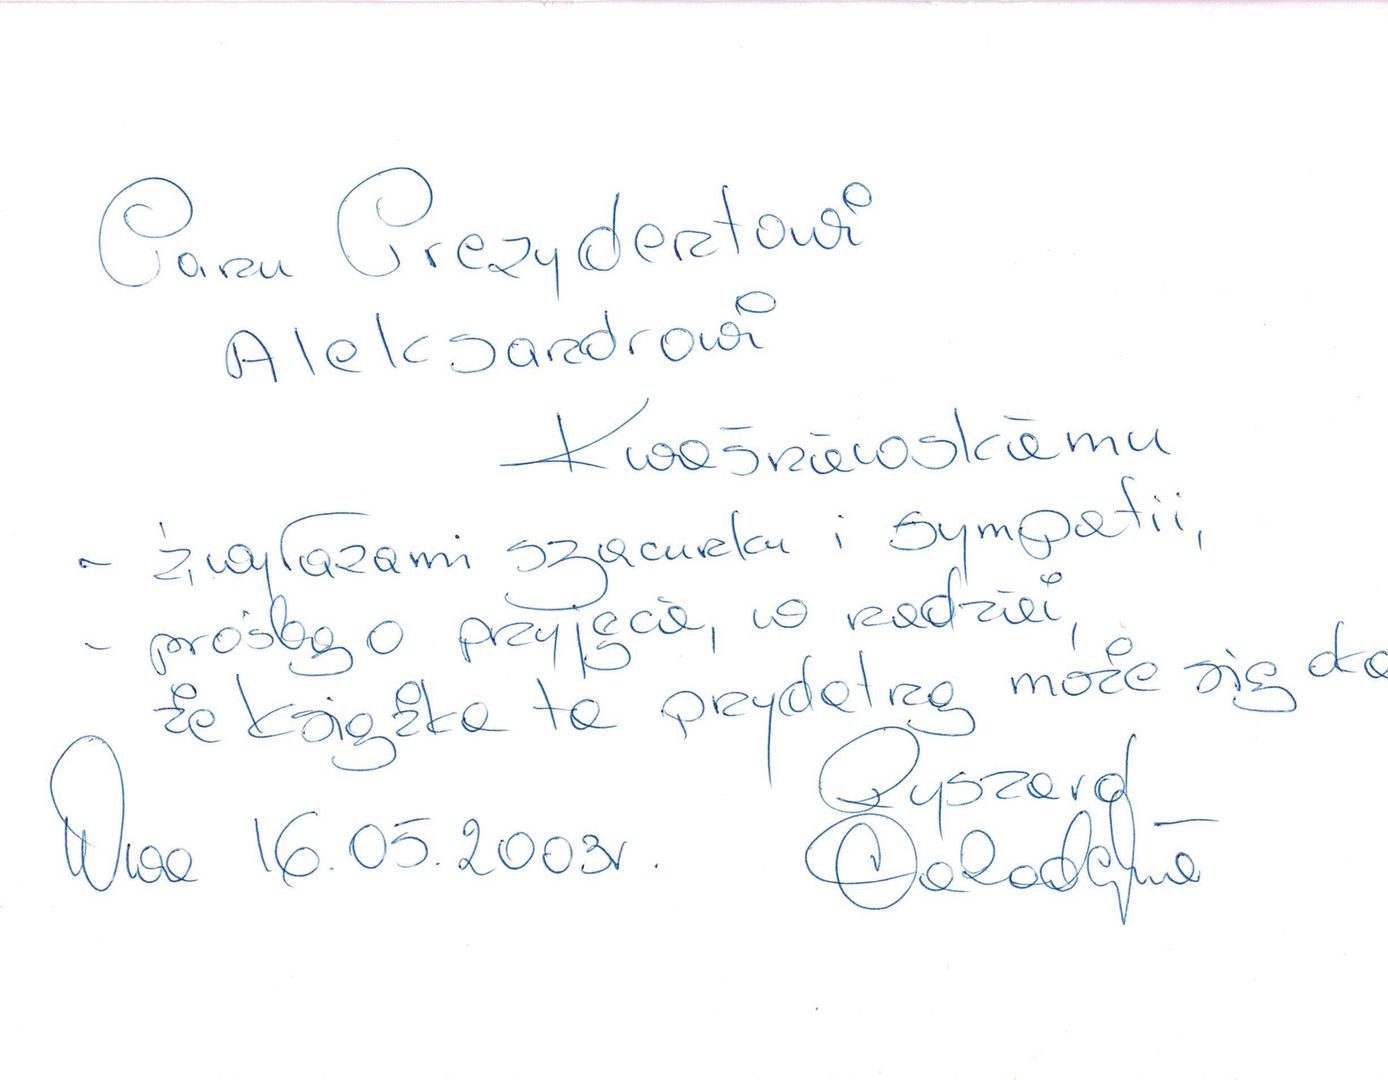 Panu Prezydentowi
Aleksandrowi
Kwaśniewskiemu
- z wyrazami szacunku i sympatii,
- prośbą o przyjęcie, w nadziei,
że książka ta przydatną może się oka
Ryszard
Dnia 16.05.2003r.